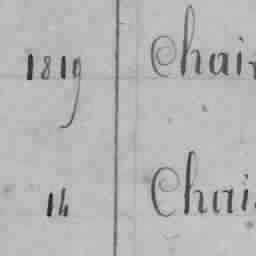 1819 Chair
14 Chai